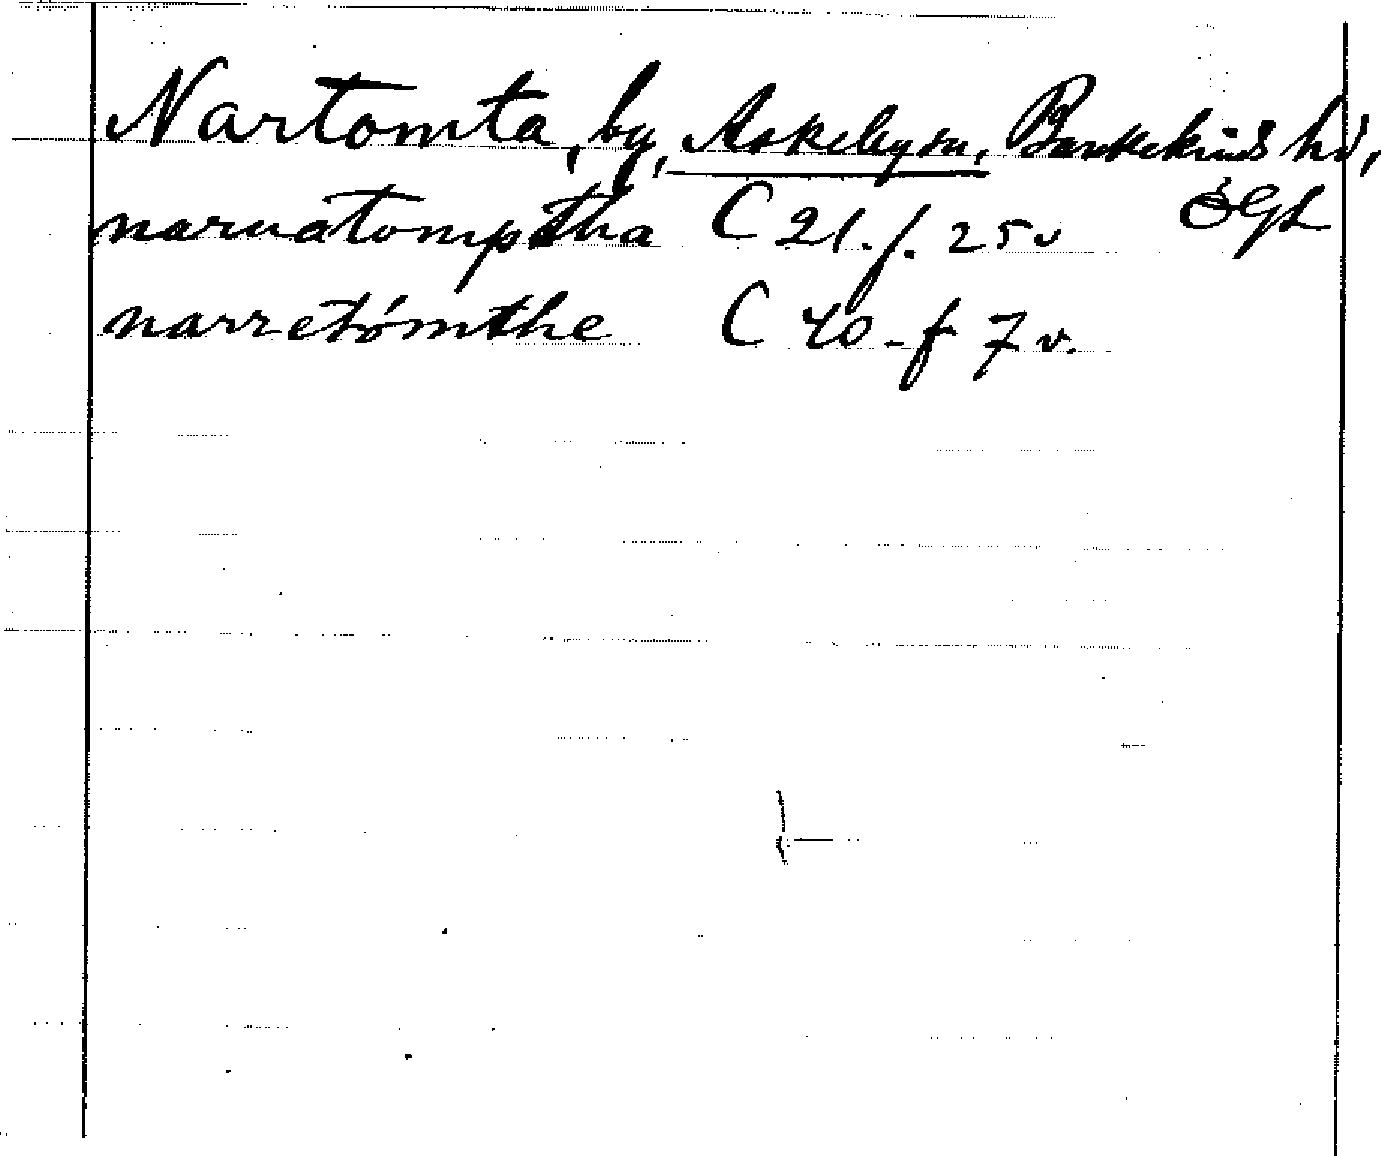 Nartomta, by, Askeby sn, Bankekinds hd,
ÖGL
naruatomptha C 21. f. 25 v
narretómthe C 40 - f 7 v.